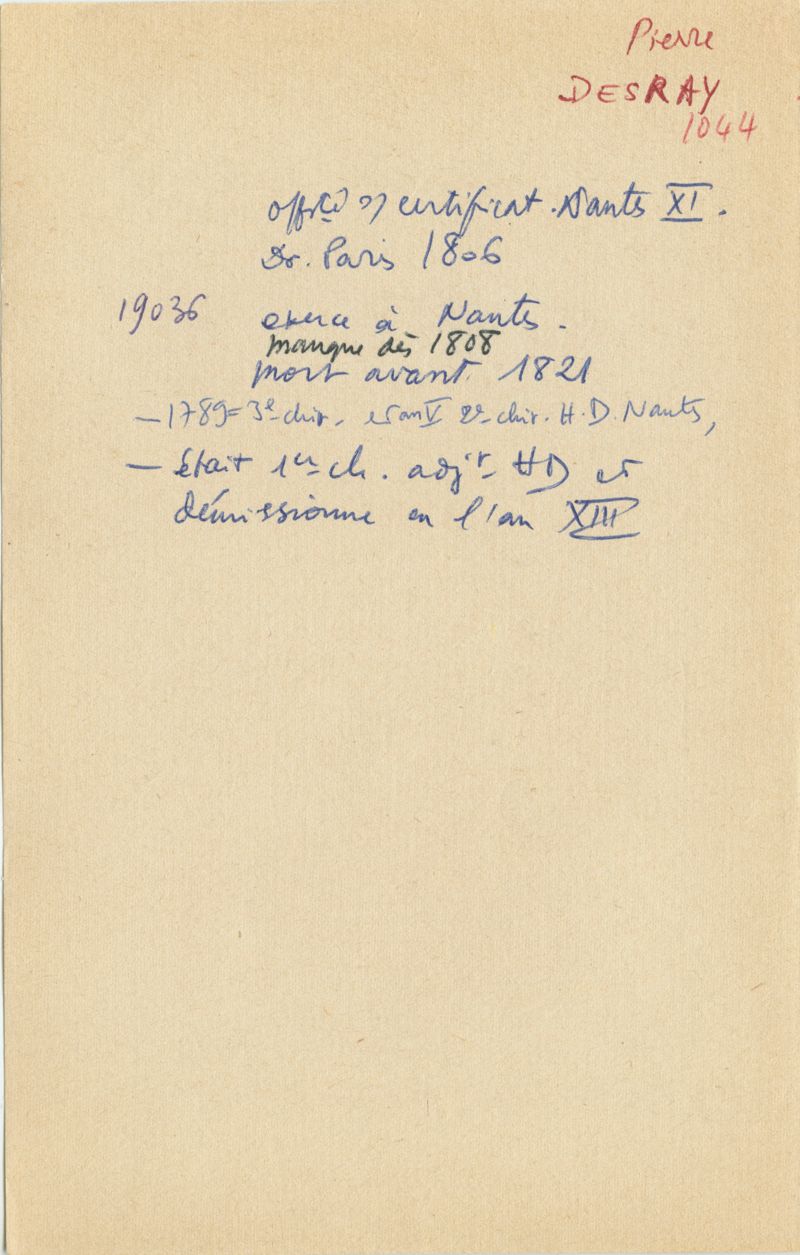 Pierre
DESRAY
1044
certificat. Nantes XI.
Dr. Paris 1806
19036 exerce à Nantes.
manque dès 1808
mort avant 1821
– 1789 = 3e chir. et an V 2e chir. H.D. Nantes,
– était 1er ch. adjt HD et
démissionne en l'an XIII